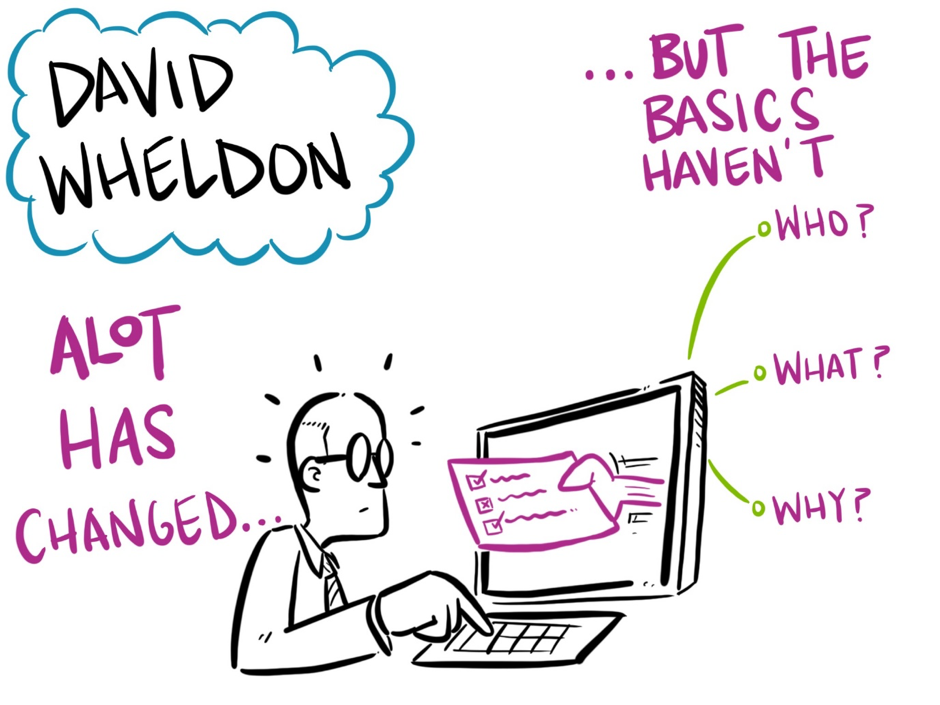 DAVID
WHELDON
ALOT
HAS
CHANGED...
...BUT THE
BASICS
HAVEN'T
WHO?
WHAT?
WHY?